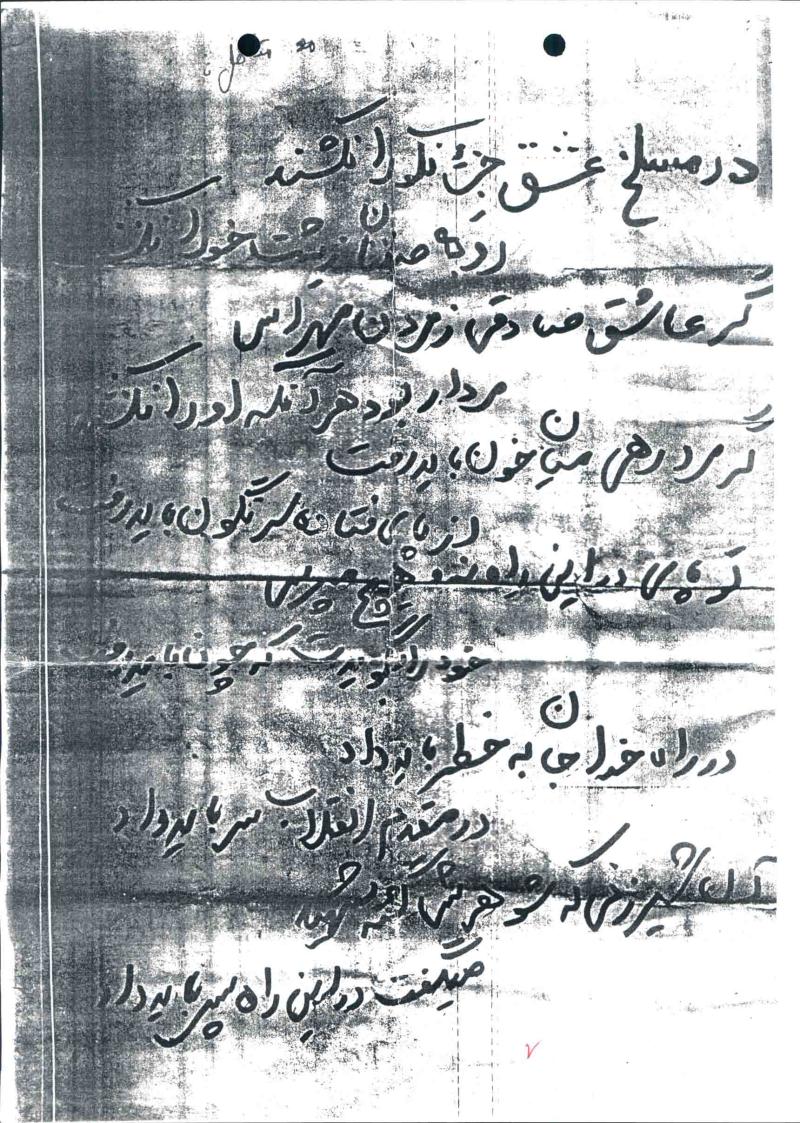 در مسلخ عشق جز نکو را نکشند
روبه صفتان زشت خو را نکشند
گر عاشق صادقی ز مردن مهراس
مردار بود هر آنکه او را نکشند
گر مرد رهی میان خون باید رفت
از پای فتاده سرنگون باید رفت
تو پای در این راه نه و هیچ مپرس
خود راه بگویدت که چون باید رفت
در راه خدا جان به خطر باید داد
در مقدم انقلاب سر باید داد
آن شیرزنی که شوهرش گشته شهید
میگفت در این راه پسر باید داد